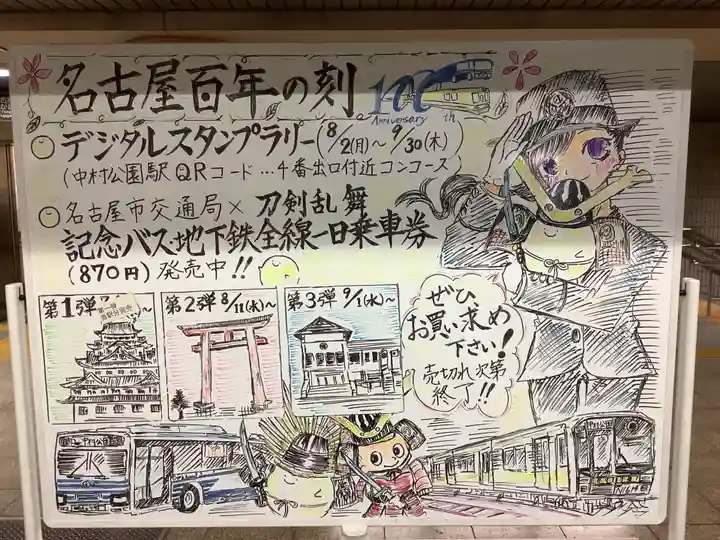 名古屋百年の刻
100
Anniversary th
○デジタルスタンプラリー(8/2(月)～9/30(木))
(中村公園駅QRコード…4番出口付近コンコース)
○名古屋市交通局×刀剣乱舞
記念バス地下鉄全線一日乗車券
(870円)発売中!!
第1弾
～
第2弾8/11(水)～
第3弾9/1(水)～
ぜひ、
お買い求め
下さい!
売切れ次第
終了!!